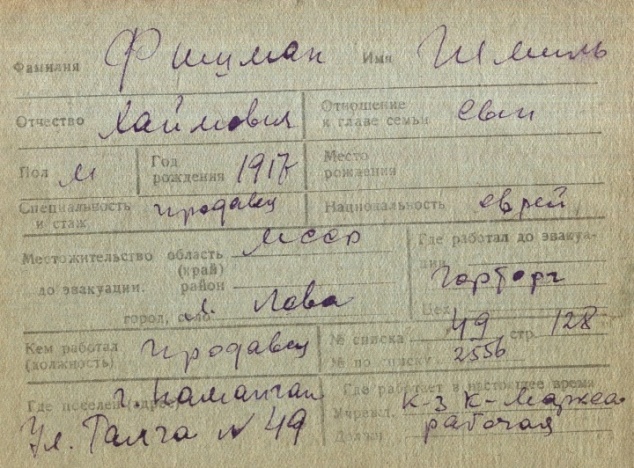 Фамилия Фишман Имя Шмиль
Отчество Хаймович Отношение к главе семьи сын
Пол м Год рождения 1917 Место рождения
Специальность и стаж продавец Национальность еврей
Местожительство до эвакуации. область (край) МССР
район
город, село Лова
Где работал до эвакуации Горторг
Цех
Кем работал (должность) продавец
№ списка 49 стр 128
№ по списку 2556
Где поселен (адрес) г Наманган
Ул. Галча N 49
Где работает в настоящее время
Учрежд. к-з К-Маркса
Должн рабочая